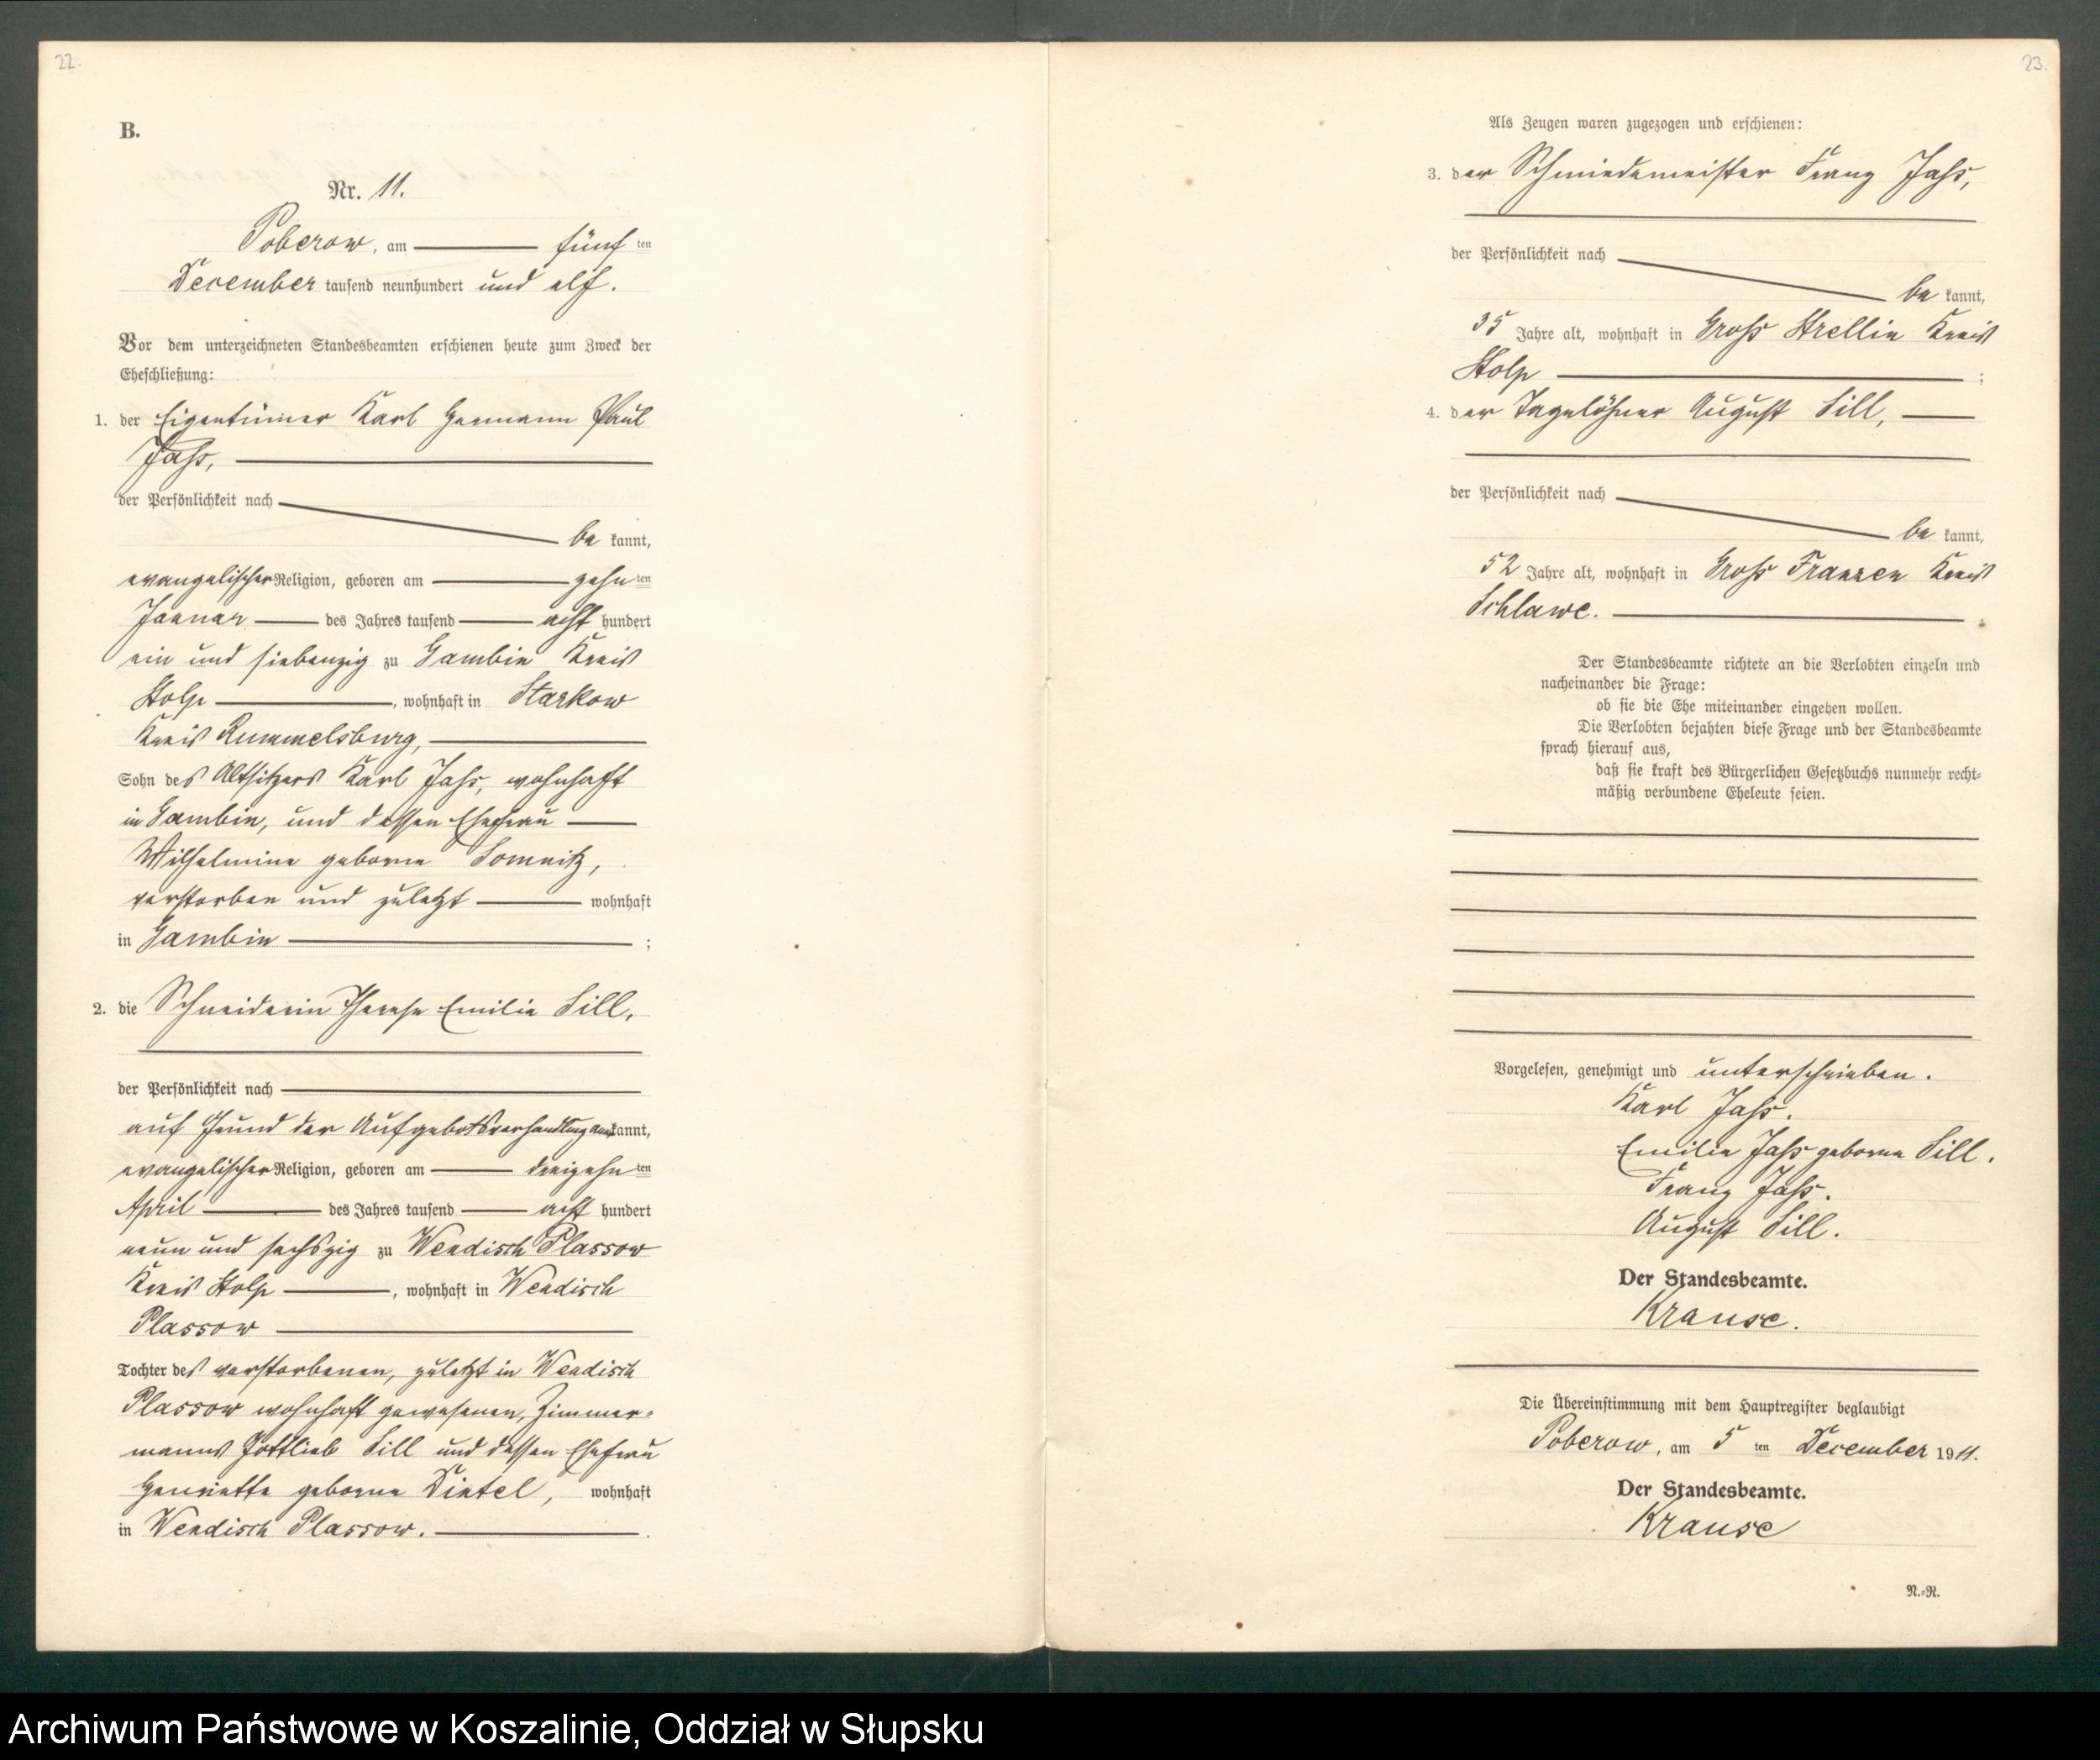 22.
B.
Nr. 11.
Poberow, am fünf ten
December tausend neunhundert und elf.
Vor dem unterzeichneten Standesbeamten erschienen heute zum Zweck der
Eheschließung:
1. der Eigentümer Karl Hermann Paul
Jahs,
der Persönlichkeit nach
be kannt,
evangelischer Religion, geboren am zehn ten
Januar des Jahres tausend acht hundert
ein und siebenzig zu Gambin Kreis
Stolp, wohnhaft in Starkow
Kreis Rummelsburg,
Sohn des Altsitzers Karl Jahs, wohnhaft
in Gambin, und dessen Ehefrau
Wilhelmine geborne Somnitz,
verstorben und zuletzt wohnhaft
in Gambin ;
2. die Schneiderin Therese Emilie Sill,
der Persönlichkeit nach
auf Grund der Aufgebotsverhandlung aner kannt,
evangelischer Religion, geboren am dreizehn ten
April des Jahres tausend acht hundert
neun und sechszig zu Wendisch Plassow
Kreis Stolp, wohnhaft in Wendisch
Plassow
Tochter des verstorbenen, zuletzt in Wendisch
Plassow wohnhaft gewesenen, Zimmer-
manns Gottlieb Sill und dessen Ehefrau
Henriette geborne Dietel, wohnhaft
in Wendisch Plassow.
23.
Als Zeugen waren zugezogen und erschienen:
3. der Schmiedemeister Franz Jahs,
der Persönlichkeit nach
be kannt,
35 Jahre alt, wohnhaft in Groß Strellin Kreis
Stolp ;
4. der Tagelöhner August Sill,
der Persönlichkeit nach
be kannt,
52 Jahre alt, wohnhaft in Groß Franzen Kreis
Schlawe.
Der Standesbeamte richtete an die Verlobten einzeln und
nacheinander die Frage:
ob sie die Ehe miteinander eingehen wollen.
Die Verlobten bejahten diese Frage und der Standesbeamte
sprach hierauf aus,
daß sie kraft des Bürgerlichen Gesetzbuchs nunmehr recht-
mäßig verbundene Eheleute seien.
Vorgelesen, genehmigt und unterschrieben.
Karl Jahs.
Emilie Jahs geborne Sill.
Franz Jahs.
August Sill.
Der Standesbeamte.
Krause.
Die Übereinstimmung mit dem Hauptregister beglaubigt
Poberow, am 5 ten December 1911.
Der Standesbeamte.
Krause
N.-R.
Archiwum Państwowe w Koszalinie, Oddział w Słupsku